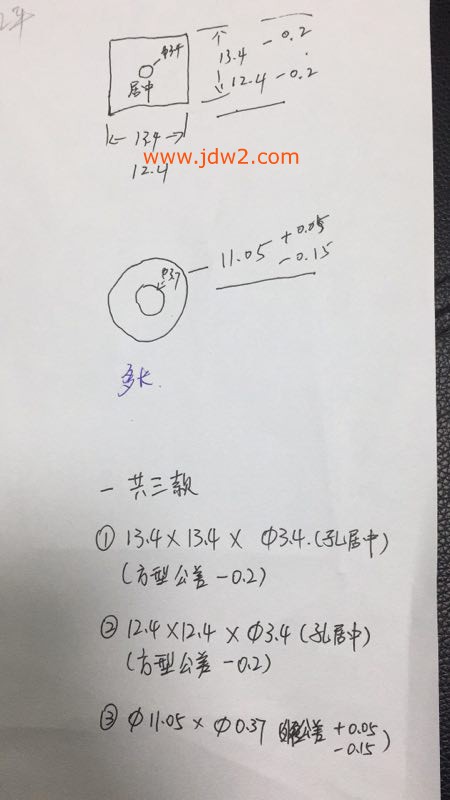 Φ3.4
居中
13.4 - 0.2
12.4 - 0.2
13.4
12.4
www.jdw2.com
11.05 +0.05
-0.15
多长
一共三款
① 13.4 × 13.4 × Φ3.4. (孔居中)
(方型公差 -0.2)
② 12.4 × 12.4 × Φ3.4 (孔居中)
(方型公差 -0.2)
③ Φ11.05 × Φ0.37 公差 +0.05
-0.15)